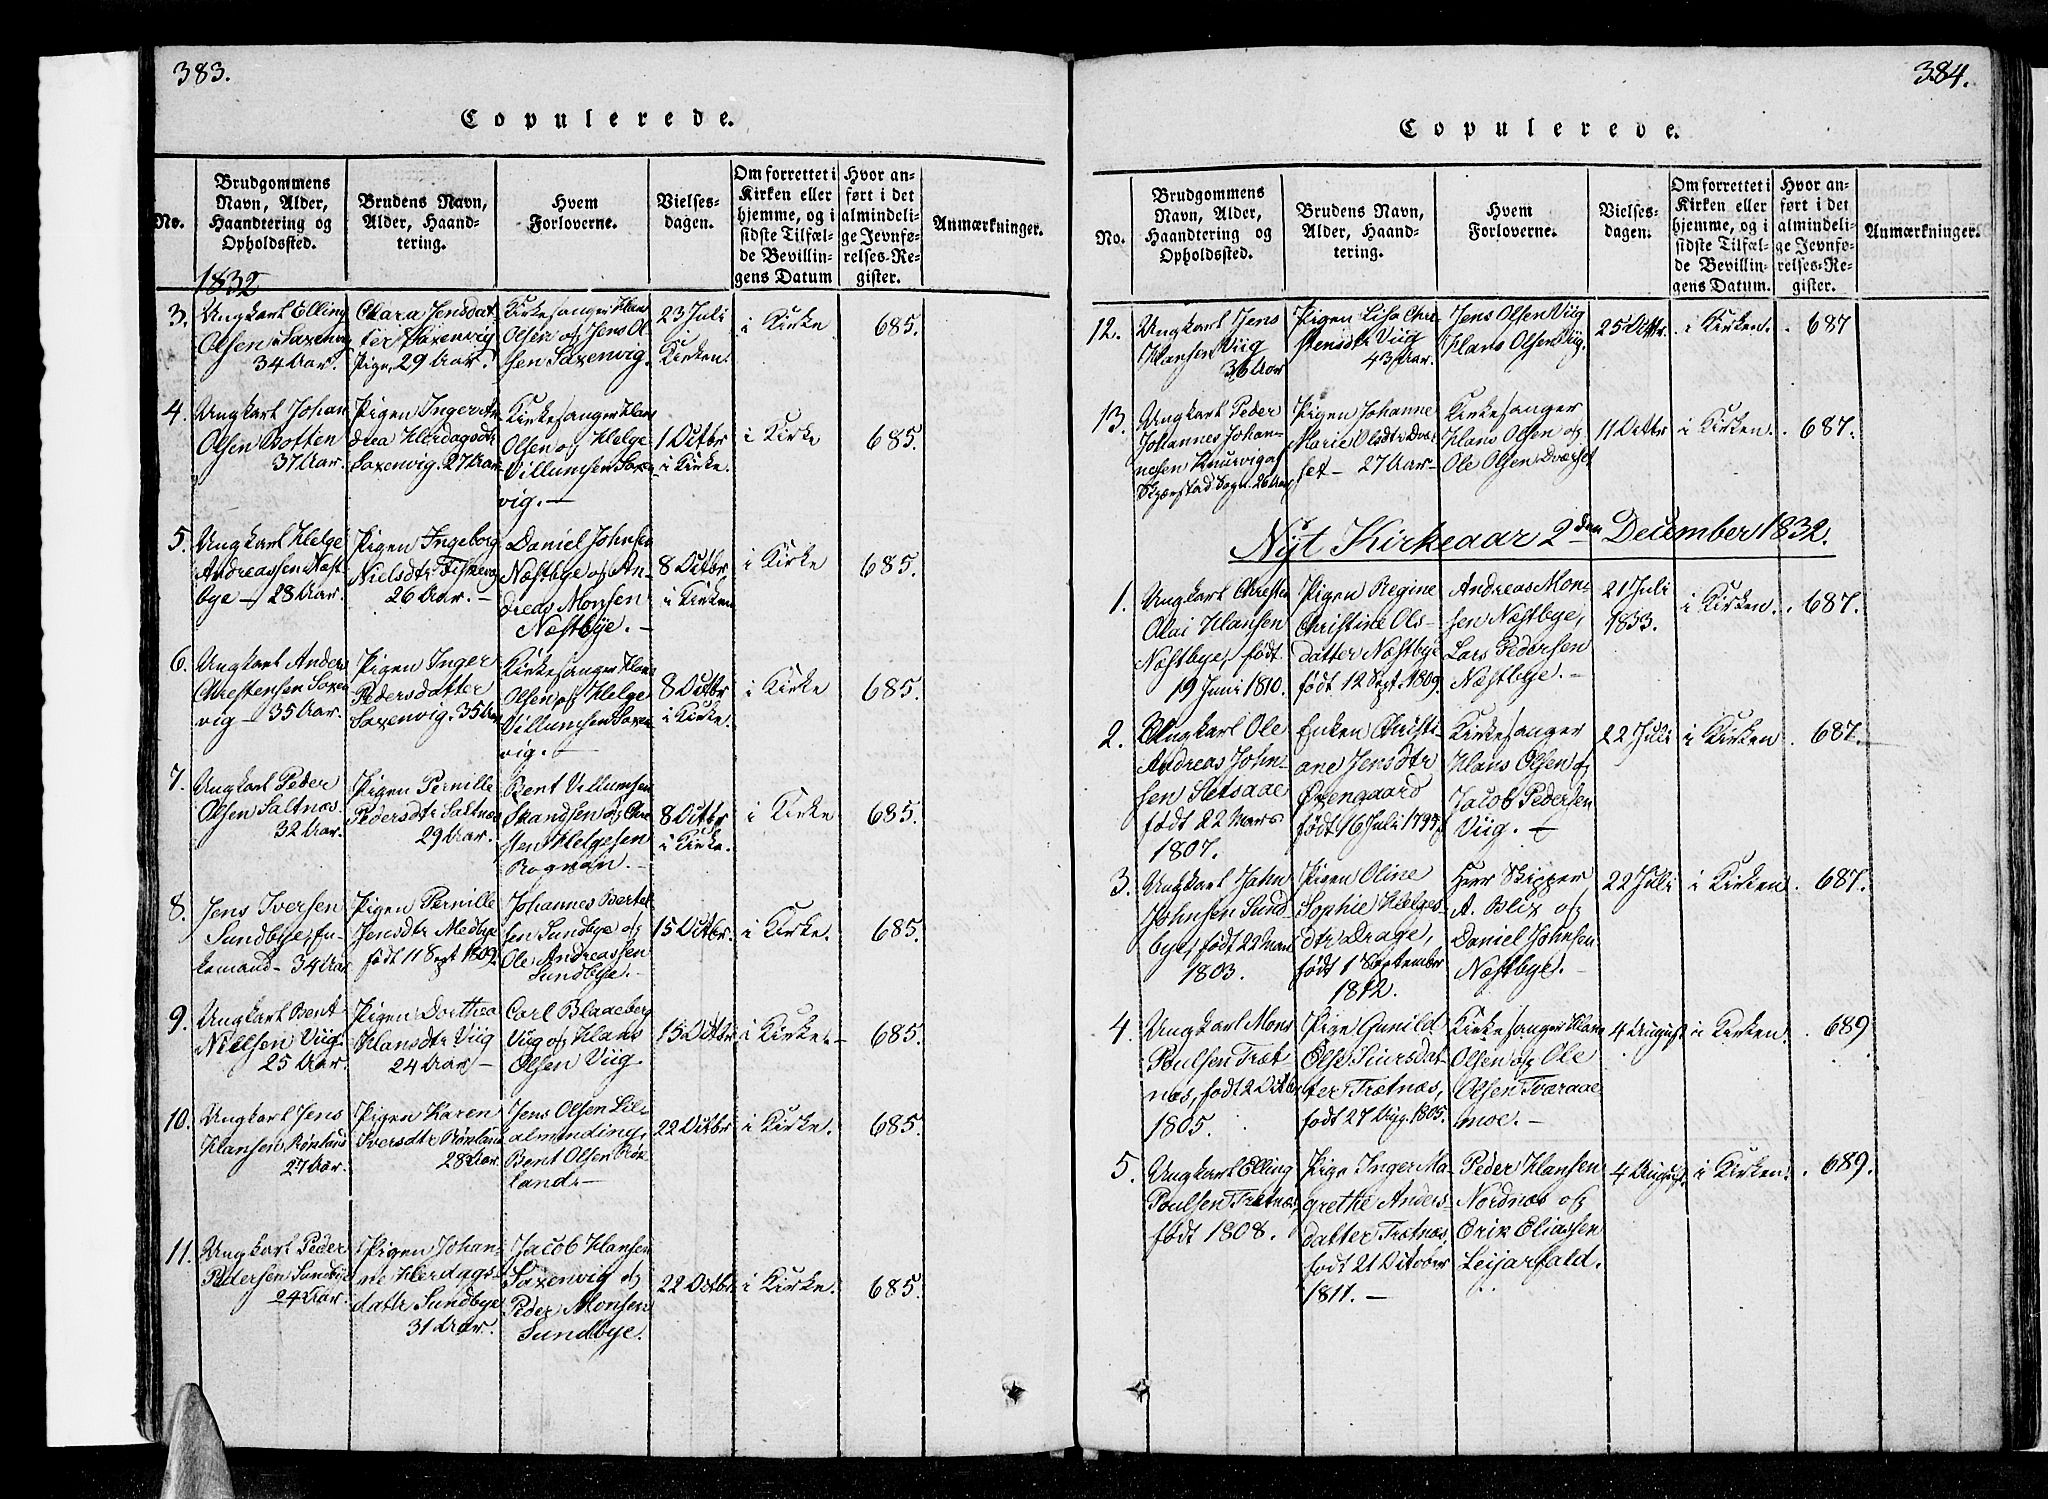 383.
Copulerede.
No.
Brudgommens
Navn, Alder,
Haandtering og
Opholdssted.
Brudens Navn,
Alder, Haand-
tering.
Hvem
Forloverne.
Vielses-
dagen.
Om forrettet i
Kirken eller
hjemme, og i
sidste Tilfæl-
de Bevillin-
gens Datum
Hvor an-
ført i det
almindeli-
ge Jevnfø-
relses-Re-
gister.
Anmærkninger.
1832
3.
Ungkarl Elling
Olsen Saxenvig
34 Aar.
Clara Jensdat-
ter Saxenvig
Pige, 29 Aar.
Kirkesanger Hans
Olsen og Jens Ol-
sen Saxenvig.
23 Juli
Kirken.
i Kirke
685.
4.
Ungkarl Johan
Olsen Botten
37 Aar.
Pigen Inger An-
drea Herdagsdtr
Saxenvig. 27 Aar
Kirkesanger Hans
Olsen og Helge
Villumsen Saxen-
vig. —
1 Octbr
i Kirke.
i Kirke
685.
5.
Ungkarl Helge
Andreassen Næst-
bye — 28 Aar.
Pigen Ingeborg
Nielsdtr Fiskevaag
26 Aar. —
Daniel Johnsen
Næstbye og An-
dreas Monsen
Næstbye. —
8 Octbr
i Kirken
i Kirke
685.
6.
Ungkarl Anders
Chrestensen Saxen-
vig — 35 Aar.
Pigen Inger
Pedersdatter
Saxenvig. 35 Aar
Kirkesanger Hans
Olsen og Helge
Villumsen Saxen-
vig. —
8 Octbr
i Kirke.
i Kirke
685.
7.
Ungkarl Peder
Olsen Saltnæs
32 Aar.
Pigen Pernille
Pedersdtr Saltnæs
29 Aar.
Bent Villumsen
Skandsen og Chre-
sten Helgesen
Rognan. —
8 Octbr
i Kirke.
i Kirke
685.
8.
Jens Iversen
Sundbye, En-
kemand — 34 Aar
Pigen Pernille
Jensdtr Medbye
født 11 Sept 1809.
Johannes Bertel-
sen Sundbye og
Ole Andreassen
Sundbye. —
15 Octbr.
i Kirke.
685.
9.
Ungkarl Bent
Nielsen Viig.
25 Aar.
Pigen Dorthea
Hansdtr Viig
24 Aar —
Carl Blaaeberg
Viig og Hans
Olsen Viig.
15 Octbr.
i Kirke. —
685.
10.
Ungkarl Jens
Hansen Rønland
27 Aar.
Pigen Karen
Iversdtr Rønland
28 Aar.
Jens Olsen Lil-
almending,
Bent Olsen Røk-
land. —
22 Octbr
i Kirke.
685.
11.
Ungkarl Peder
Pedersen Sundbye
24 Aar.
Pigen Johan-
ne Herdags-
datter Sundbye
31 Aar.
Jacob Hansen
Saxenvig og
Peder Monsen
Sundbye.
22 Octbr.
i Kirke.
685.
384.
Copulerede.
No.
Brudgommens
Navn, Alder,
Haandtering og
Opholdssted.
Brudens Navn,
Alder, Haand-
tering.
Hvem
Forloverne.
Vielses-
dagen.
Om forrettet i
Kirken eller
hjemme, og i
sidste Tilfæl-
de Bevillin-
gens Datum.
Hvor an-
ført i det
almindeli-
ge Jevnfø-
relses-Re-
gister.
Anmærkninger.
12.
Ungkarl Jens
Hansen Viig
36 Aar
Pigen Lisa Chre-
stensdtr Viig
43 Aar.
Jens Olsen Viig
Hans Olsen Viig.
25 Octbr.
i Kirken.
687
13.
Ungkarl Peder
Johannes Johan-
nesen Knurvig af
Skjerstad Sogn. 26 Aar
Pigen Johanne
Marie Olsdtr Dvær-
set — 27 Aar —
Kirkesanger
Hans Olsen og
Ole Olsen Dværset
11 Octbr
i Kirken.
687.
Nyt Kirkeaar 2den December 1832.
1.
Ungkarl Chresten
Olai Hansen
Næstbye, født
19 Juni 1810.
Pigen Regine
Christine Ols-
datter Næstbye
født 12 Sept. 1809.
Andreas Mon-
sen Næstbye,
Lars Pedersen
Næstbye. —
21 Juli
1833.
i Kirken.
687.
2.
Ungkarl Ole
Andreas John-
sen Setsaae
født 22 Mars
1807.
Enken Christi-
ane Jensdtr
Øxengaard
født 16 Juli 1797.
Kirkesanger
Hans Olsen og
Jacob Pedersen
Viig. —
22 Juli
i Kirken
687.
3.
Ungkarl John
Johnsen Sund-
bye, født 22 Mars
1803.
Pigen Oline
Sophie Helges-
dtr Drage,
født 1 September
1812.
Herr Skipper
A. Blix og
Daniel Johnsen
Næstbye. —
22 Juli
i Kirken
687.
4.
Ungkarl Mons
Poulsen Trætnæs
næs, født 2 Octbr
1805.
Pige Gunild
Olse Siursdat-
ter Trætnæs,
født 27 Aug. 1805.
Kirkesanger Hans
Olsen og Ole
Olsen Tværaae-
moe. —
4 August
i Kirken
689
5.
Ungkarl Elling
Poulsen Trætnæs,
født 1808.
Pige Inger Ma-
grethe Anders-
datter Trætnæs,
født 21 October
1811. —
Peder Hansen
Nordnæs og
Erik Eliassen
Leijarfald.
4 August.
i Kirken.
689.